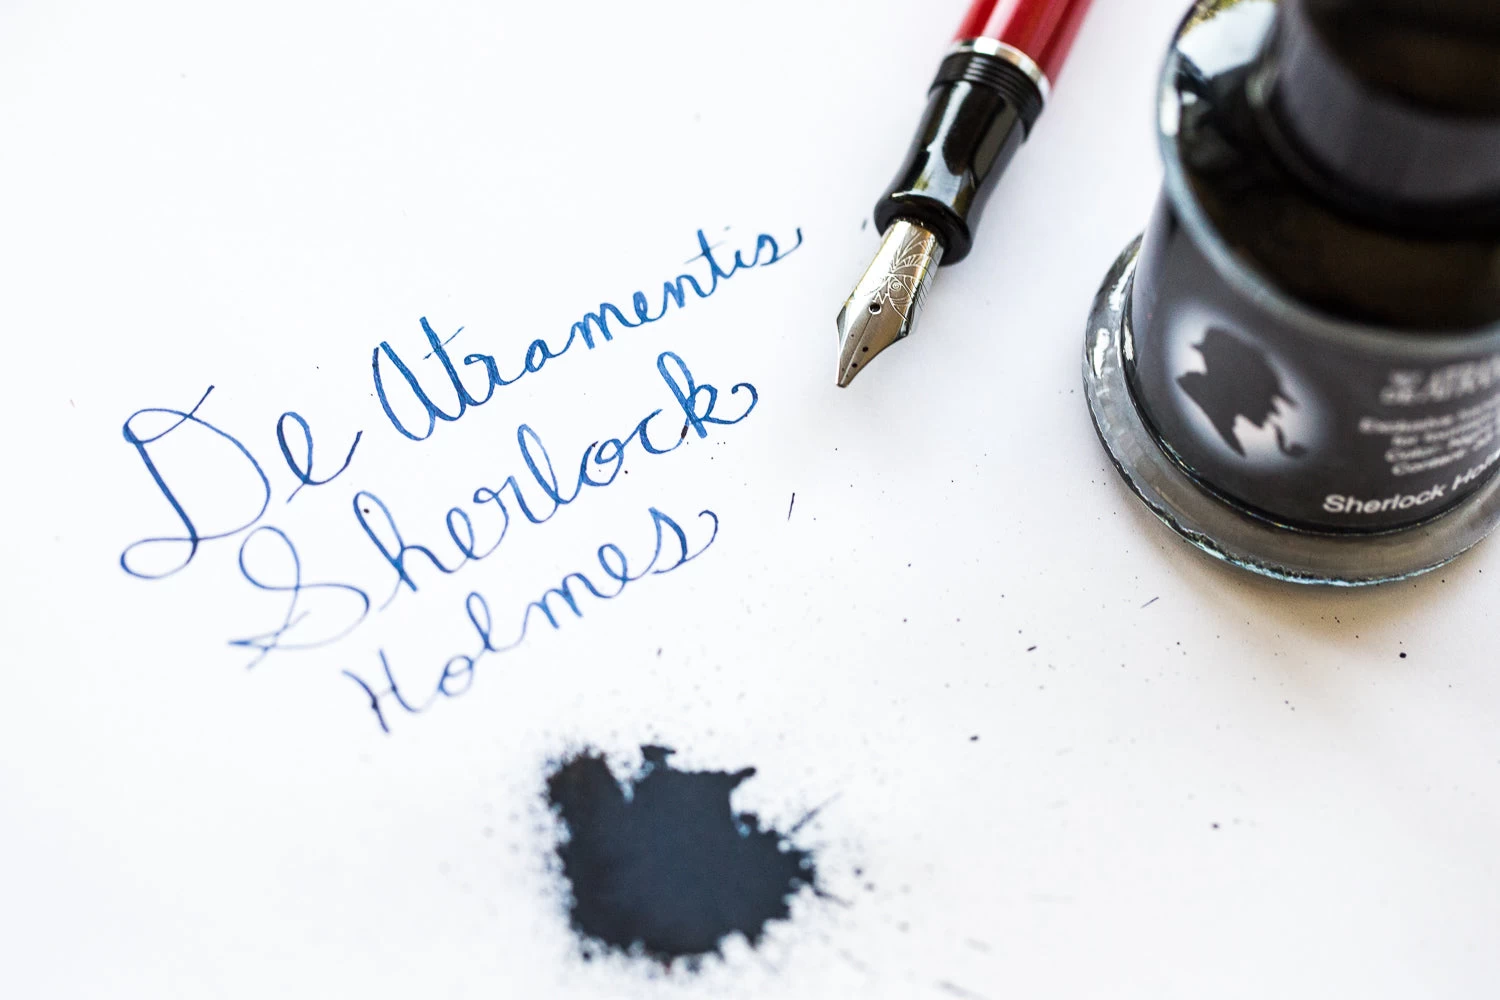 De Atramentis
Sherlock
Holmes
Sherlock